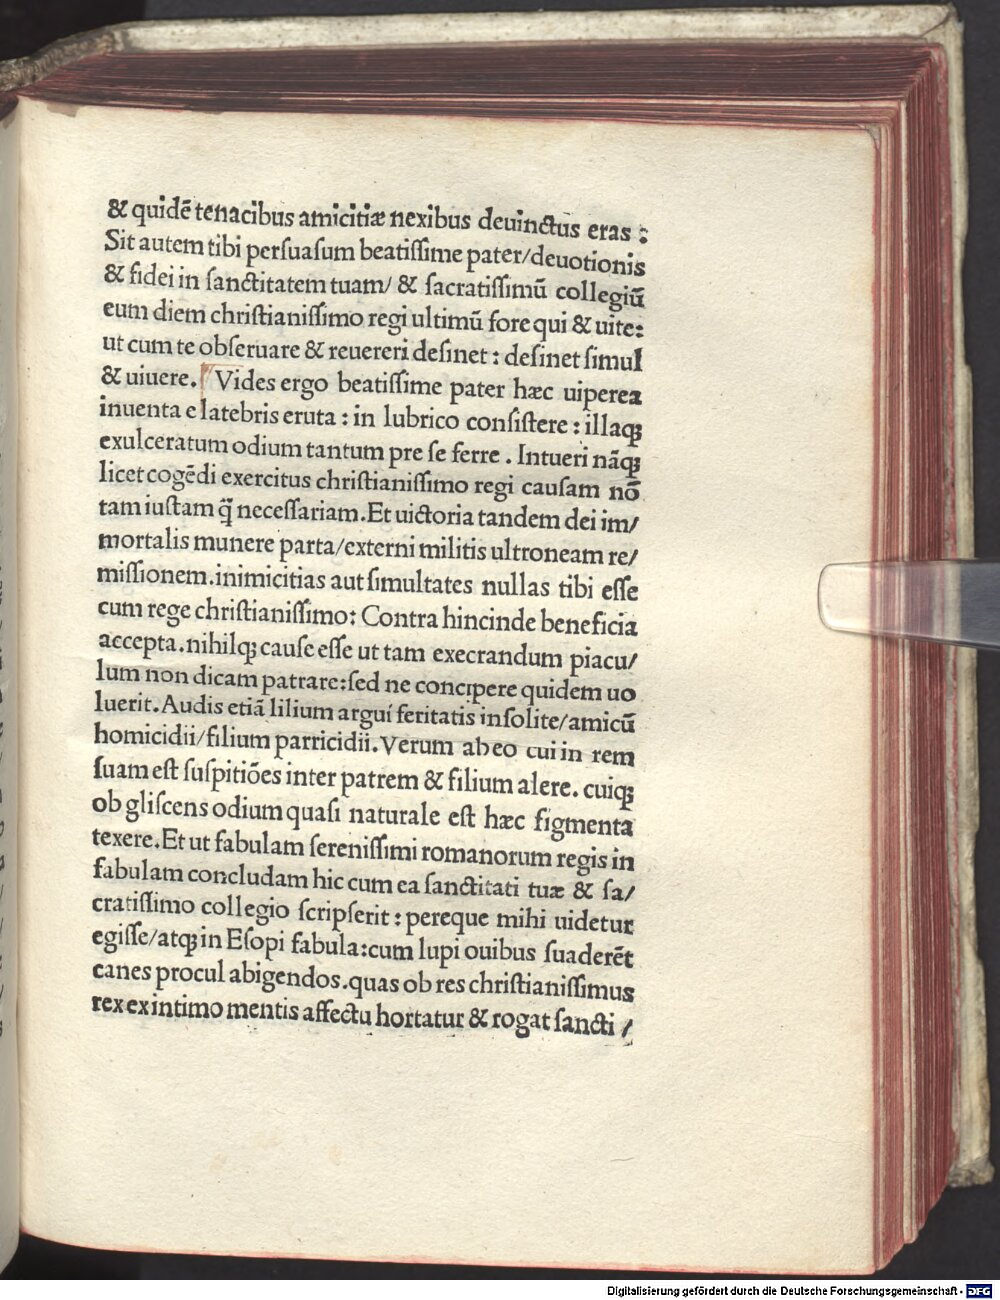 & quidē tenacibus amicitiæ nexibus deuinctus eras :
Sit autem tibi persuasum beatissime pater/deuotionis
& fidei in sanctitatem tuam/ & sacratissimū collegiū
eum diem christianissimo regi ultimū fore qui & uite:
ut cum te obseruare & reuereri desinet : desinet simul
& uiuere. Vides ergo beatissime pater hæc uiperea
inuenta e latebris eruta : in lubrico consistere : illaqꝫ
exulceratum odium tantum pre se ferre . Intueri nāqꝫ
licet cogēdi exercitus christianissimo regi causam nō
tam iustam q̄ necessariam.Et uictoria tandem dei im/
mortalis munere parta/externi militis ultroneam re/
missionem.inimicitias aut simultates nullas tibi esse
cum rege christianissimo: Contra hincinde beneficia
accepta.nihilqꝫ cause esse ut tam execrandum piacu/
lum non dicam patrare:sed ne concipere quidem uo
luerit.Audis etiā lilium argui feritatis insolite/amicū
homicidii/filium parricidii.Verum ab eo cui in rem
suam est suspitiōes inter patrem & filium alere. cuiqꝫ
ob gliscens odium quasi naturale est hæc figmenta
texere.Et ut fabulam serenissimi romanorum regis in
fabulam concludam hic cum ea sanctitati tuæ & sa/
cratissimo collegio scripserit : pereque mihi uidetur
egisse/atqꝫ in Esopi fabula:cum lupi ouibus suaderēt
canes procul abigendos.quas ob res christianissimus
rex ex intimo mentis affectu hortatur & rogat sancti /
Digitalisierung gefördert durch die Deutsche Forschungsgemeinschaft - DFG